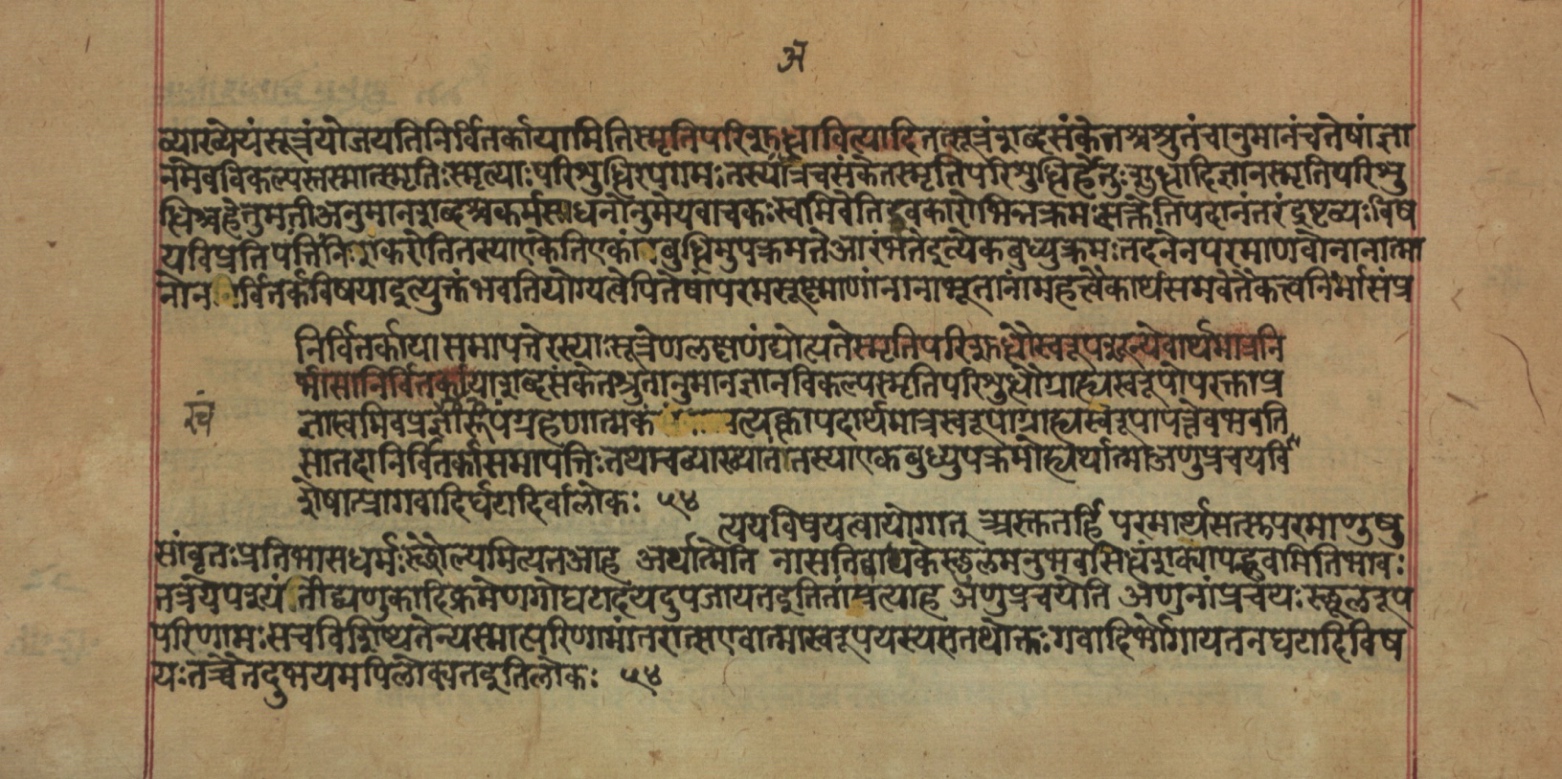 अ
व्याख्येयं सूत्रं योजयति निर्वितर्काया मिति स्मृतिपरिशुद्धावित्यादि तत्सूत्रं शब्दसंकेतश्च श्रुतं चानुमानं च तेषां ज्ञा
नमेव विकल्पस्तस्मात्स्मृतिः स्मृत्याः परिशुद्धिरपगमः तस्यां त्रच संकेतस्मृतिपरिशुद्धिर्हेतुः श्रुद्धादिज्ञानस्मृतिपरिशु
द्धिश्च हेतुमती अनुमानशब्दश्च कर्मसाधनोनुमेयवाचकः स्वमिवेति इवकारो भिन्नक्रमः त्यक्त्वेति पदानंतरं द्रष्टव्यः विष
यविप्रतिपत्तिं निराकरोति तस्या एकेति एकां बुद्धिमुपक्रमते आरंभते इत्येकबुध्युक्रमः तदनेन परमाणवो नानात्मा
नो न र्वितर्कविषया इत्युक्तं भवति योग्यत्वेपि तेषां परमसूक्ष्माणां नानाभूतानां महत्वैकार्थसमवेतैकत्वनिर्भासं प्र
निर्वितर्काया समापत्तेरस्याः सूत्रेण लक्षणं द्योत्यते स्मृतिपरिशुद्धौ स्वरूपशून्येवार्थमात्रनि
र्भासा निर्वितर्का या शब्दसंकेतश्रुतानुमानज्ञानविकल्पस्मृतिपरिशुद्धौ ग्राह्यस्वरूपोपरक्ता प्र
ज्ञा स्वमिव प्रज्ञारूपं ग्रहणात्मकं त्यक्त्वा पदार्थमात्रस्वरूपा ग्राह्यस्वरूपापन्नेव भवति
खं
सा तदा निर्वितर्का समापत्तिः तथा च व्याख्याता तस्या एकबुध्युपक्रमो ह्यर्थात्मा अणुप्रचयवि
शेषात्मा गवादिर्घटादिर्वा लोकः ५४
त्ययविषयत्वायोगात् अस्तु तर्हि परमार्थसत्सु परमाणुषु
सांवृतः प्रतिभासधर्मः स्थौल्यमित्यत आह अर्थात्मेति नासति बाधके स्थूलमनुभवसिद्धं शक्यापह्नवमिति भावः
तत्र ये पश्यंति द्व्यणुकादिक्रमेण गोघटादय उपजायंत इति तांप्रत्याह अणुप्रचयेति अणुनां प्रचयः स्थूलरूप
परिणामः स च विशिष्यते न्यस्मात्परिणामांतरात् स एवात्मा स्वरूपं यस्य स तथोक्तः गवादिर्भोगायतनं घटादिर्विष
यः तच्चैतदुभयमपि लोक्यत इति लोकः ५४